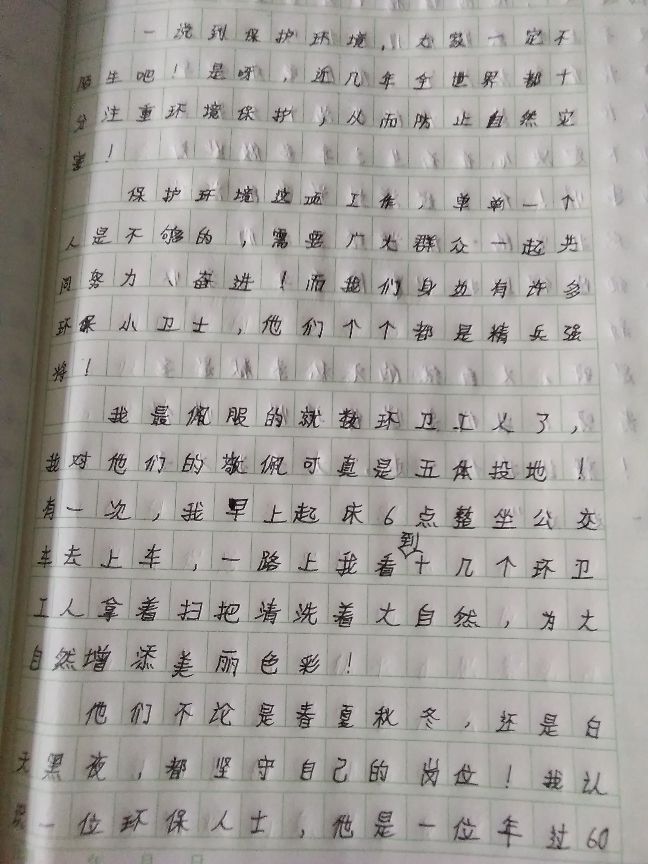 一说到保护环境，大家一定不
陌生吧！是呀，近几年全世界都十
分注重环境保护，从而防止自然灾
害！
保护环境这项工作，单单一个
人是不够的，需要广大群众一起共
同努力、奋进！而我们身边有许多
环保小卫士，他们个个都是精兵强
将！
我最佩服的就数环卫工人了，
我对他们的敬佩可真是五体投地！
有一次，我早上起床6点整坐公交
车去上车，一路上我看到十几个环卫
工人拿着扫把清洗着大自然，为大
自然增添美丽色彩！
他们不论是春夏秋冬，还是白
天黑夜，都坚守自己的岗位！我认
一位环保人士，他是一位年过60